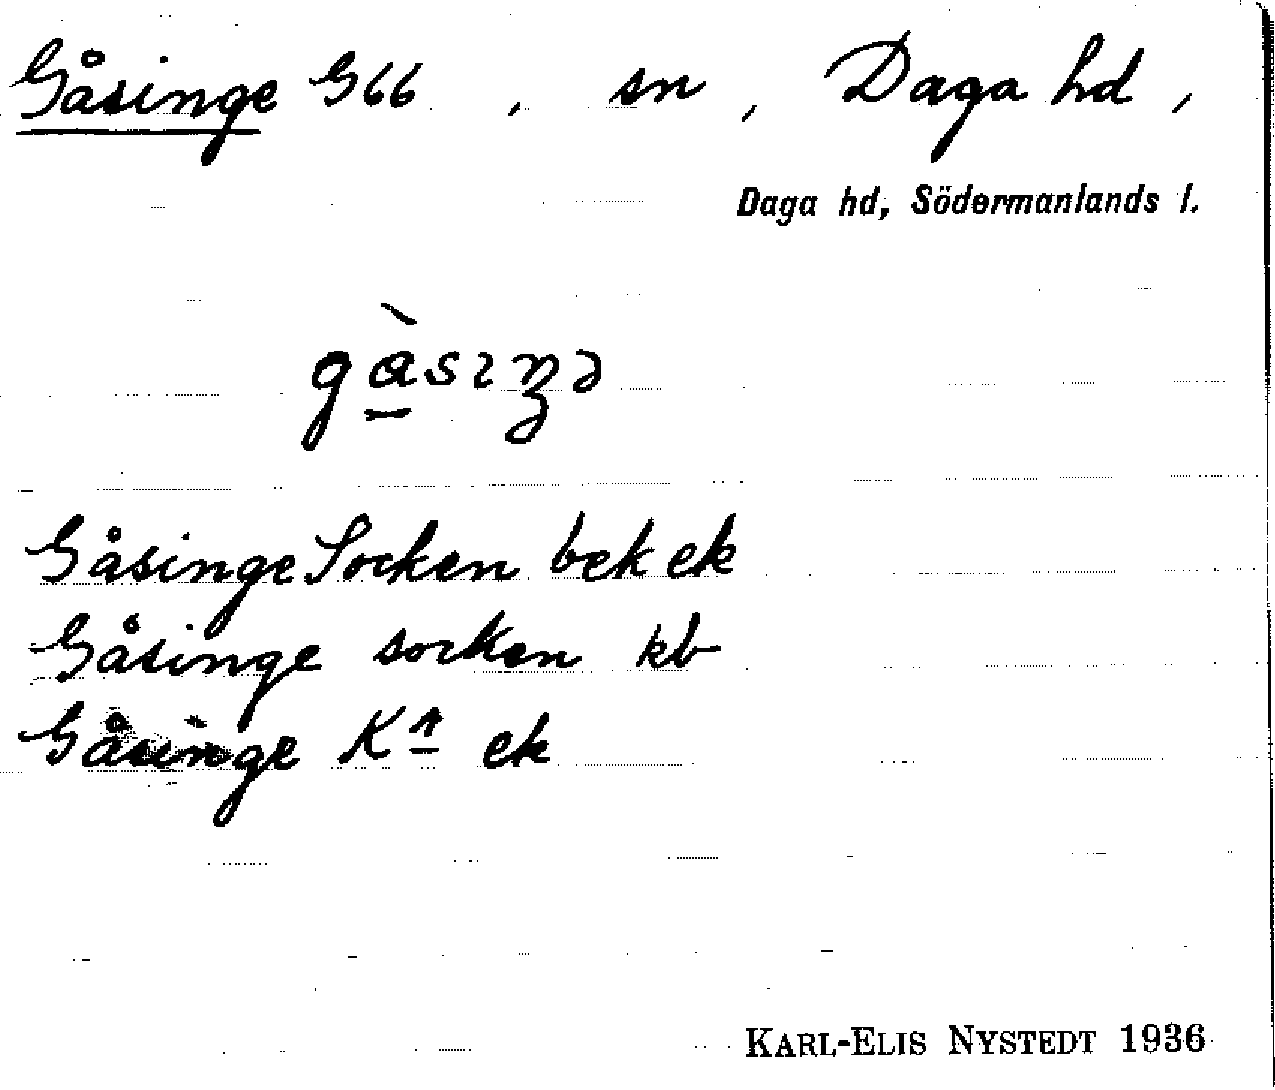 Gåsinge G66 , sn , Daga hd ,
Daga hd, Södermanlands l.
Gåsinge Socken bek ek
Gåsinge socken kb
Gåsinge Ka ek
KARL-ELIS NYSTEDT 1936